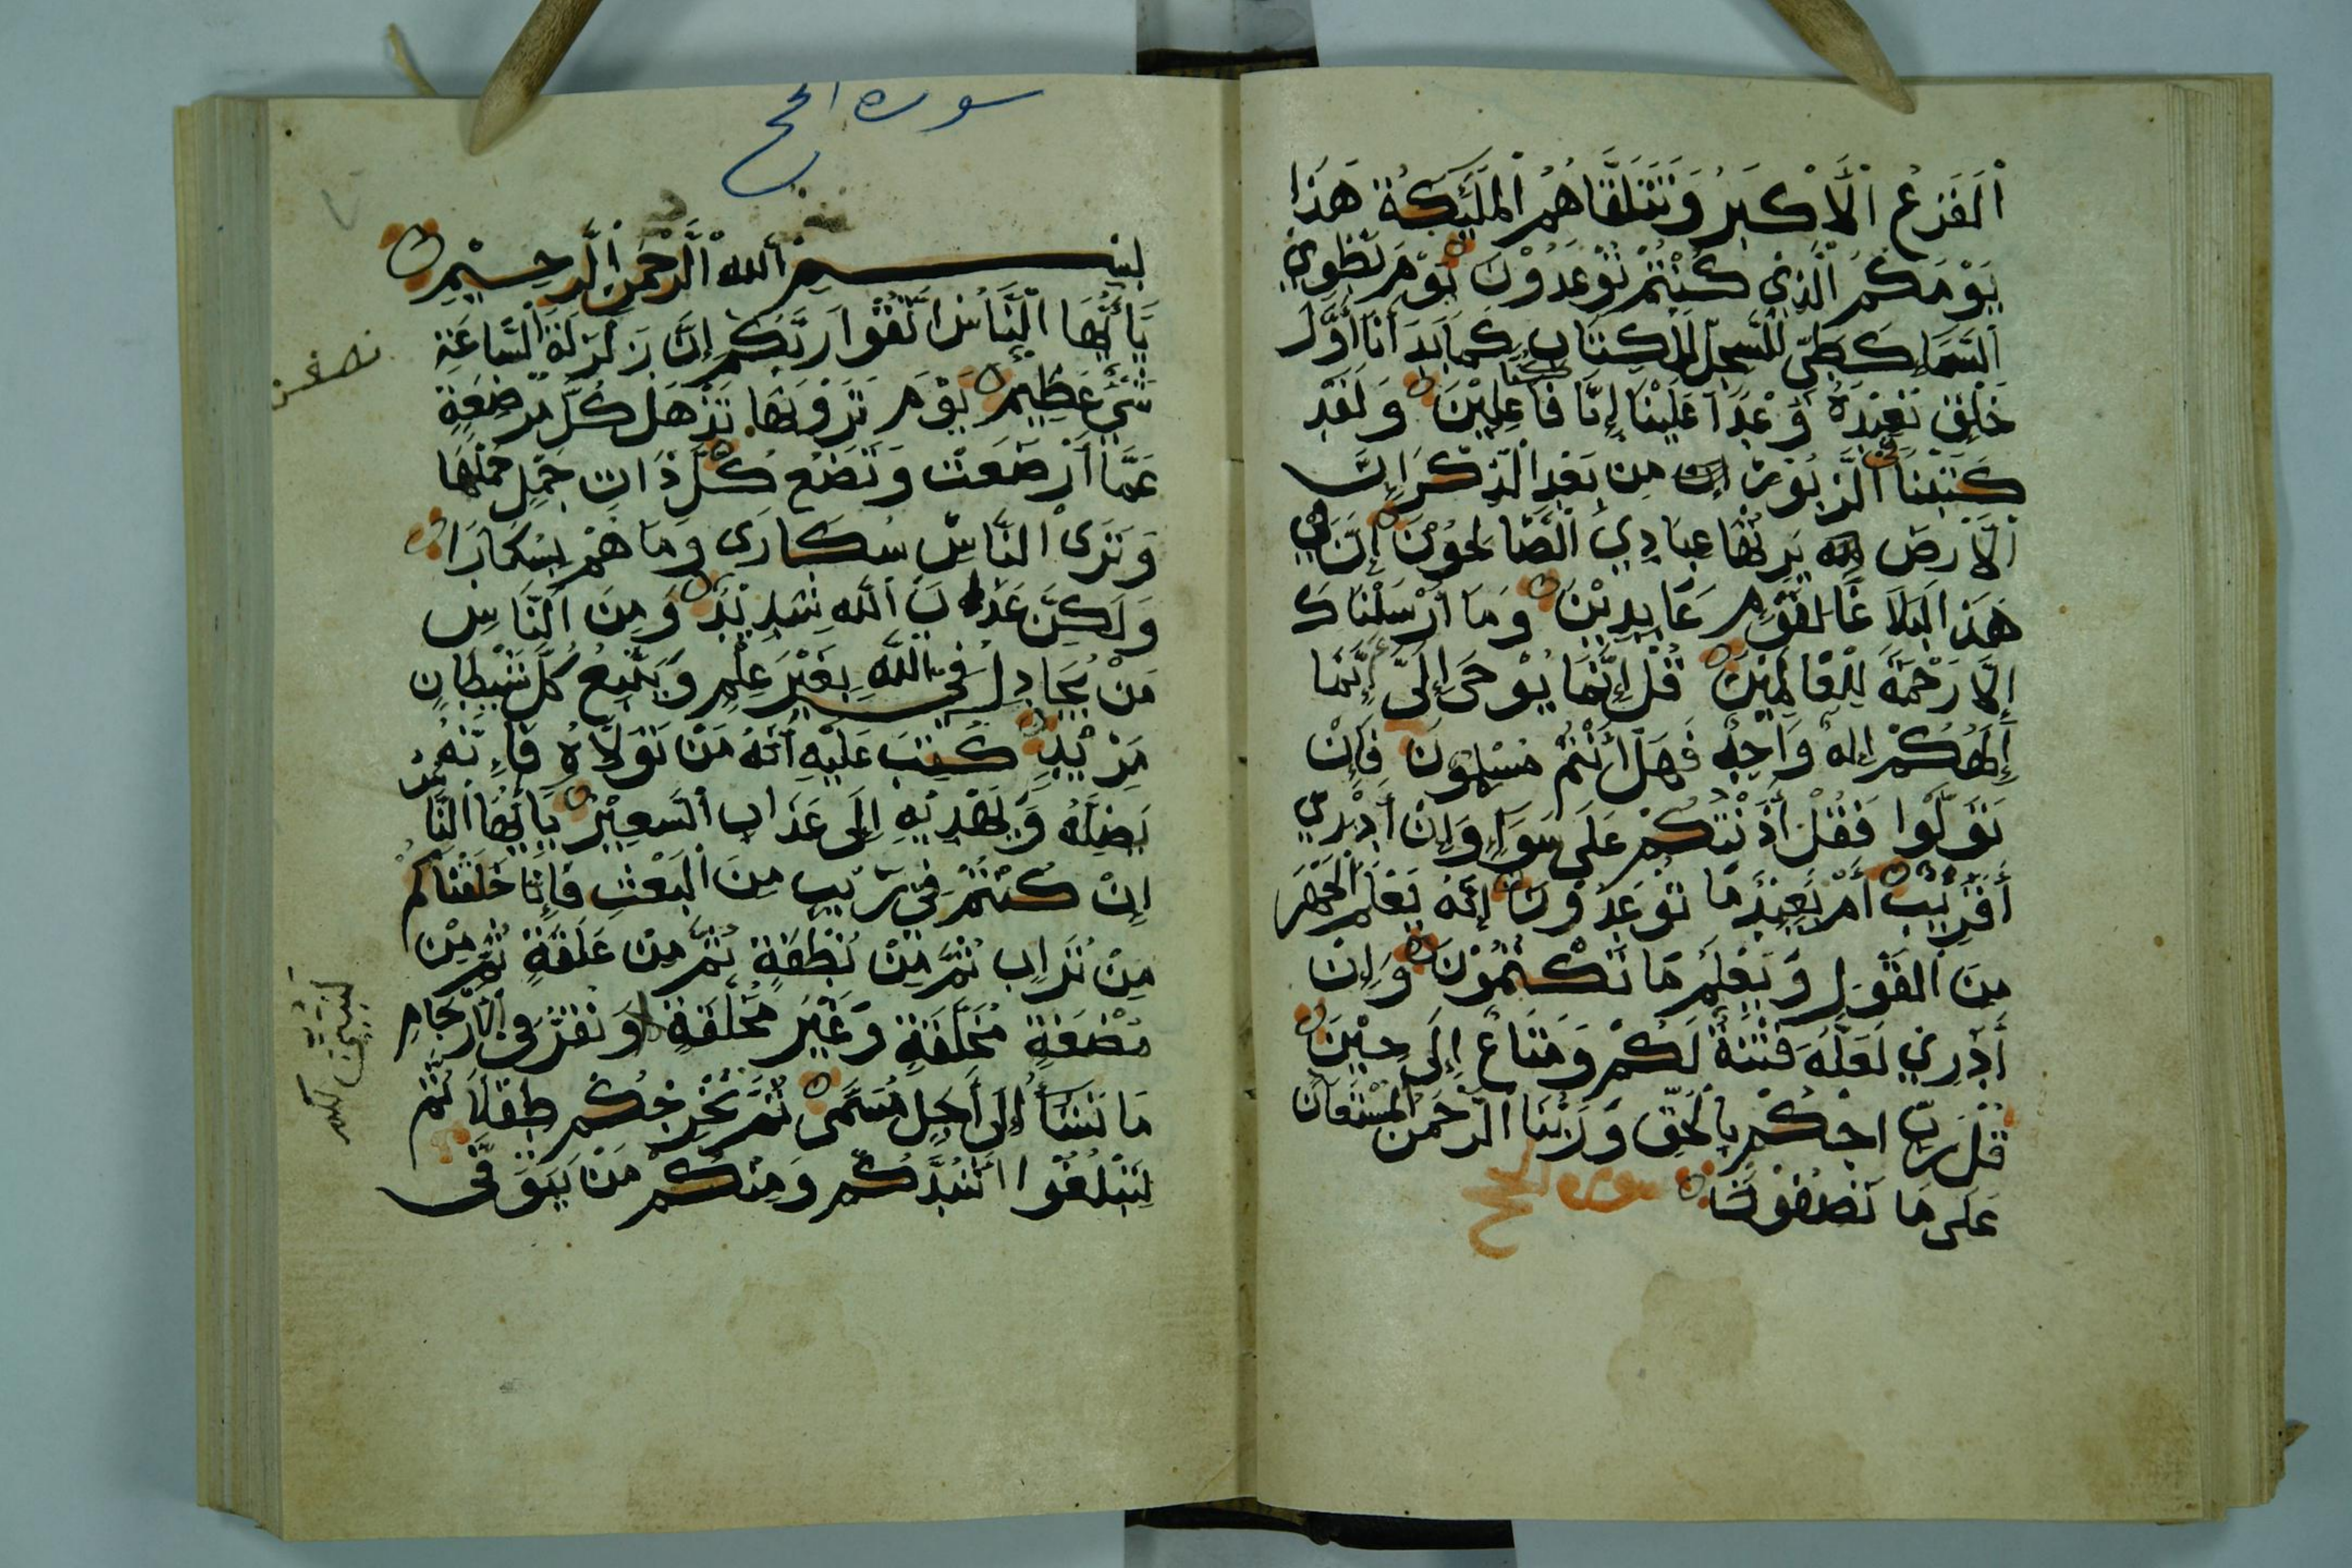 اَلفَزَعُ الْأَكْبَرُ وَتَتَلَقَّاهُمُ الْمَلَٰئِكَةُ هَذَا
يَوْمَكُمُ الَّذِي كُنْتُمْ تُوْعَدُوْنَ يَوْمَ نَطْوِي
السَّمَاءَ كَطَيِّ السِّجِلِّ لِلْكِتَابِ كَمَا بَدَأنَا أَوَّلَ
خَلْقٍ نُعِيْدُهُ وَعْدًا عَلَيْنَا إِنَّا كُنَّا فَاعِلِيْنَ وَلَقَدْ
كَتَبْنَا فِي الزَّبُوْرِ مِن بَعْدِ الذِّكْرِ إِنَّ
الْأَرضَ يَرِثُهَا عِبَادِيَ الصَّالِحُوْنَ إِنَّ فِي
هَذَا لَبَلَاغًا لِقَوْمٍ عَابِدِيْنَ وَمَا أَرْسَلْنَاكَ
إِلَّا رَحْمَةً لِلْعَالَمِيْنَ قُلْ إِنَّمَا يُوْحَى إِلَيَّ إِنَّمَا
إِلَهُكُمْ إِلَهٌ وَاحِدٌ فَهَلْ أَنْتُمْ مُسْلِمُوْنَ فَإِنْ
تَوَلَّوْا فَقُلْ أَذَنْتُكُمْ عَلَى سَوَاءٍ وَإِنْ أَدْرِي
أَقَرِيْبٌ أَمْ بَعِيْدٌ مَا تُوْعَدُوْنَ إِنَّهُ يَعْلَمُ الْجَهْرَ
مِنَ الْقَوْلِ وَيَعْلَمُ مَا تَكْتُمُوْنَ وَإِنْ
أَدْرِي لَعَلَّهُ فِتْنَةٌ لَكُمْ وَمَتَاعٌ إِلَى حِيْنٍ
قُلْ رَبِّ احْكُمْ بِالْحَقِّ وَرَبُّنَا الرَّحْمَنُ الْمُسْتَعَانُ
عَلَى مَا تَصِفُوْنَ سورة الحج
سوره الحج
بِسْمِ اللهِ الرَّحْمَنِ الرَّحِيْمِ
يَا أَيُّهَا النَّاسُ اتَّقُوْا رَبَّكُمْ إِنَّ زَلْزَلَةَ السَّاعَةِ
شَيْءٌ عَظِيْمٌ يَوْمَ تَرَوْنَهَا تَذْهَلُ كُلُّ مُرْضِعَةٍ
عَمَّا أَرْضَعَتْ وَتَضَعُ كُلُّ ذَاتِ حَمْلٍ حَمْلَهَا
وَتَرَى النَّاسَ سُكَارَى وَمَا هُمْ بِسُكَارَا
وَلَكِنَّ عَذَابَ اللهِ شَدِيْدٌ وَمِنَ النَّاسِ
مَنْ يُجَادِلُ فِي اللهِ بِغَيْرِ عِلْمٍ وَيَتَّبِعُ كُلَّ شَيْطَانٍ
مَرِيْدٍ كُتِبَ عَلَيْهِ أَنَّهُ مَنْ تَوَلَّاهُ فَإِنَّهُ
يُضِلُّهُ وَيَهْدِيْهِ إِلَى عَذَابِ السَّعِيْرِ يَا أَيُّهَا النَّاسُ
إِنْ كُنْتُمْ فِي رَيْبٍ مِنَ الْبَعْثِ فَإِنَّا خَلَقْنَاكُمْ
مِنْ تُرَابٍ ثُمَّ مِنْ نُطْفَةٍ ثُمَّ مِنْ عَلَقَةٍ ثُمَّ مِنْ
مُضْغَةٍ مُخَلَّقَةٍ وَغَيْرِ مُخَلَّقَةٍ وَنُقِرُّ فِي الْأَرْحَامِ
مَا نَشَاءُ إِلَى أَجَلٍ مُسَمًّى ثُمَّ نُخْرِجُكُمْ طِفْلًا ثُمَّ
لِتَبْلُغُوْا أَشُدَّكُمْ وَمِنْكُمْ مَنْ يُتَوَفَّى
نصف
لنبين لكم